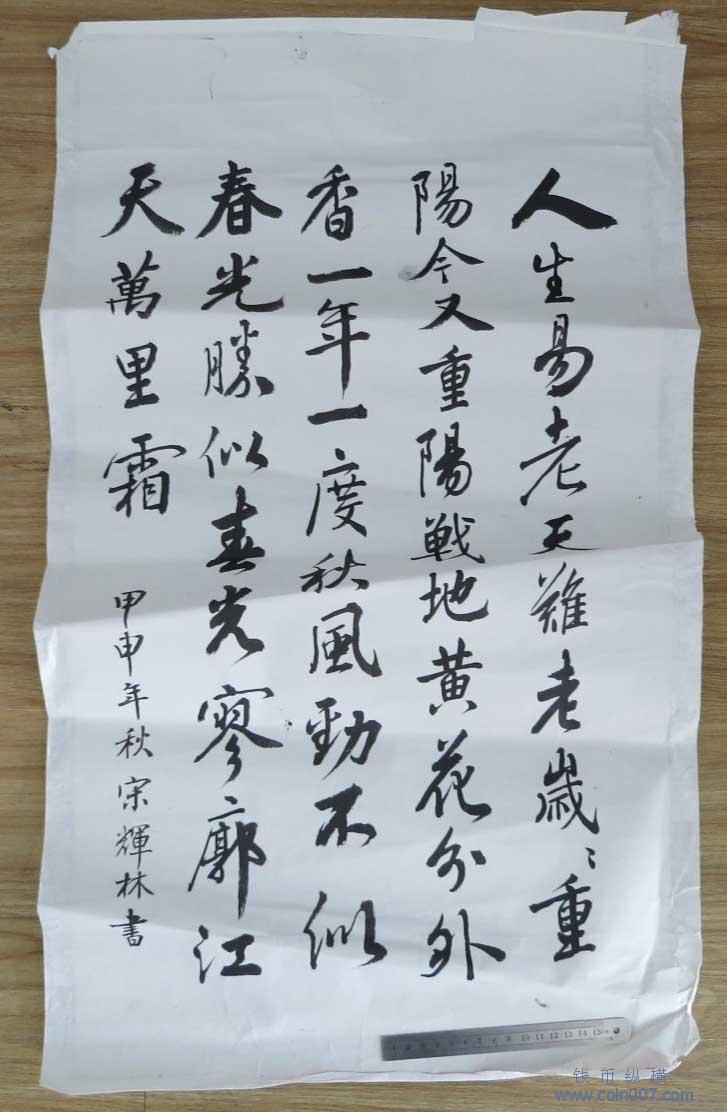 人生易老天難老歲〻重
陽今又重陽戰地黃花分外
香一年一度秋風勁不似
春光勝似春光寥廓江
天萬里霜
甲申年秋宋輝林書
钱币纵横
www.coin007.com